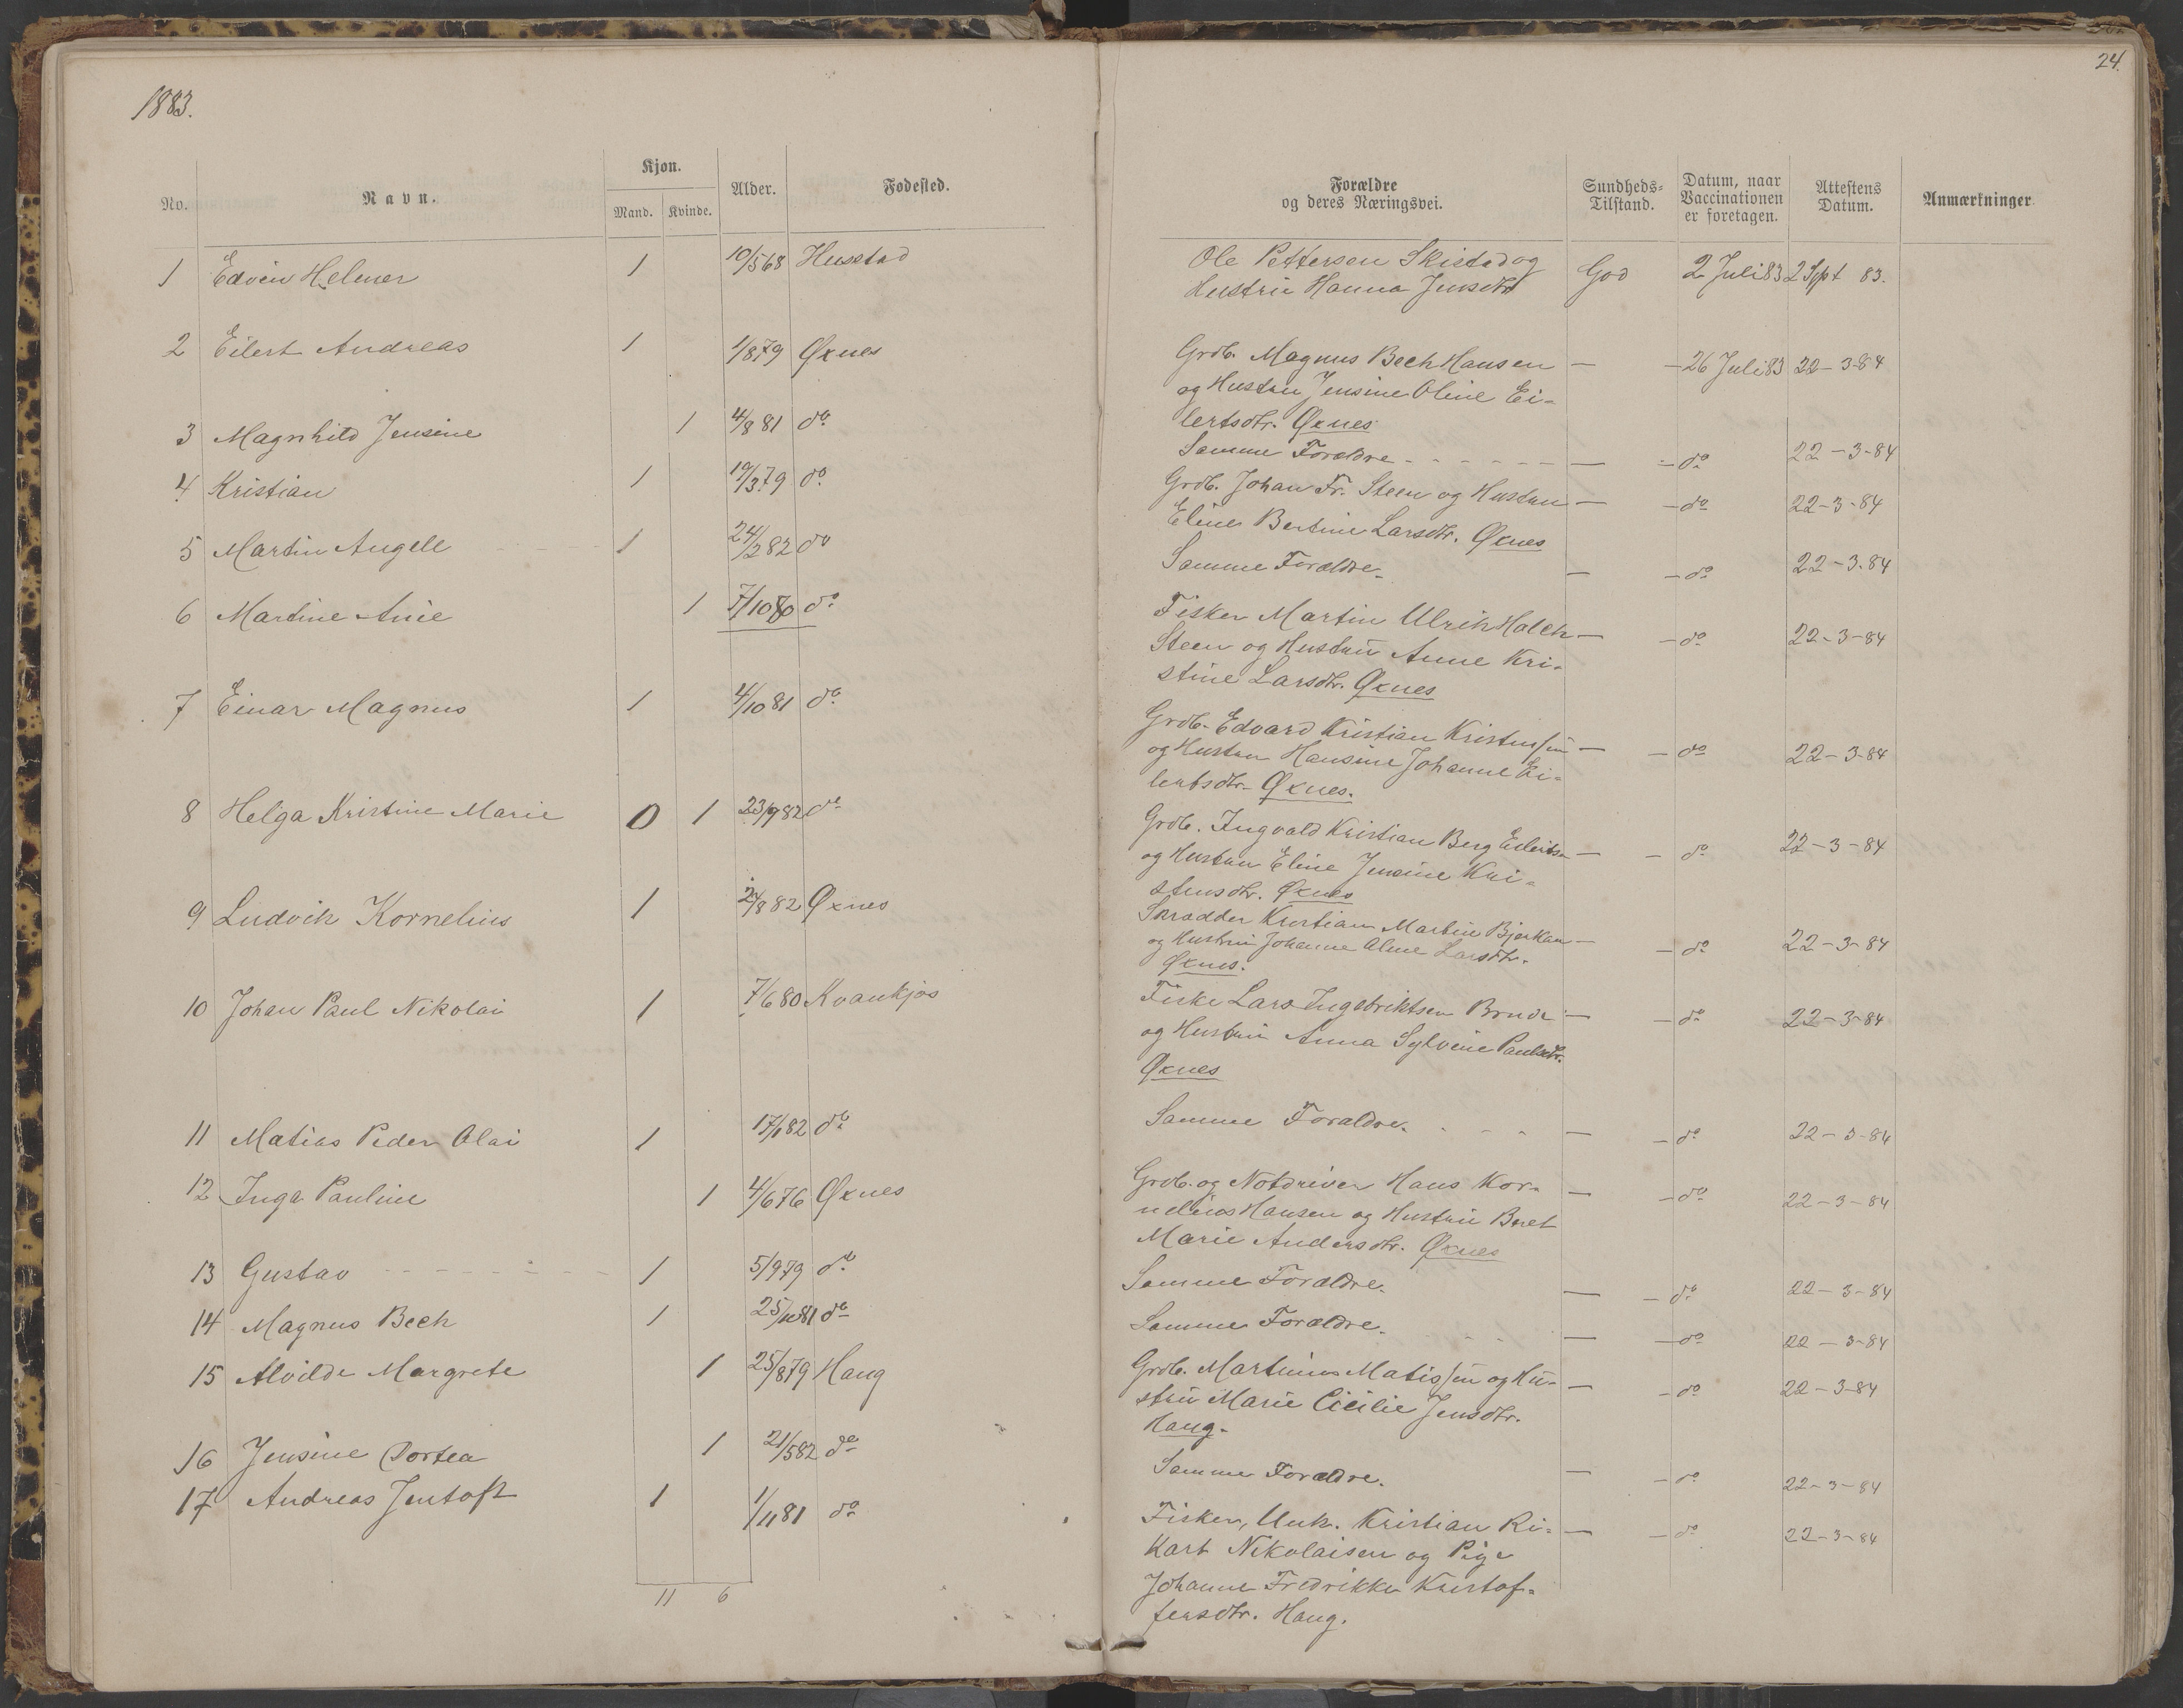 1883.
24.
No. Navn. Kjøn. Mand. Kvinde. Alder. Fødested.
Forældre og deres Næringsvei. Sundheds-Tilstand. Datum, naar Vaccinationen er foretagen. Attestens Datum. Anmærkninger.
1 Edvin Helmer 1 10/5 68 Husstad
2 Eilert Andreas 1 1/8 79 Øxnes
3 Magnhild Jensine 1 4/8 81 do
4 Kristian 1 19/3 79 do
5 Martin Angell 1 24/2 82 do
6 Martine Anie 1 7/10 80 do
7 Einar Magnus 1 4/10 81 do
8 Helga Kristine Marie 0 1 23/9 82 do
9 Ludvik Kornelius 1 2/8 82 Øxnes
10 Johan Paul Nikolai 1 7/6 80 Kvankjos
11 Matias Peder Olai 1 17/1 82 do
12 Inga Pauline 1 4/6 76 Øxnes
13 Gustav 1 5/9 79 do
14 Magnus Bech 1 25/10 81 do
15 Alvilde Margrete 1 25/8 79 Haug
16 Jensine Dortea 1 21/5 82 do
17 Andreas Jentoft 1 1/11 81 do
11 6
Ole Pettersen Skistad og God 2 Juli 83 2 Sept 83.
Hustru Hanna Jensdtr
Grdb. Magnus Bech Hansen — — 26 Juli 83 22-3-84
og Hustru Jensine Oline Ei-
lertsdtr. Øxnes
Samme Forældre — — do 22-3-84
Grdb. Johan Fr. Steen og Hustru — — do 22-3-84
Eline Bertine Larsdtr. Øxnes
Samme Forældre. — — do 22-3-84
Fisker Martin Ulrik Holch — — do 22-3-84
Steen og Hustru Anne Kri-
stine Larsdtr. Øxnes
Grdb. Edvard Kristian Kristenssen — — do 22-3-84
og Hustru Hansine Johanne Ei-
lertsdtr. Øxnes.
Grdb. Ingvald Kristian Berg Eilertsen — — do 22-3-84
og Hustru Eline Jensine Kri-
stensdtr. Øxnes
Skrædder Kristian Martin Bjerkan — — do 22-3-84
og Hustru Johanne Oline Larsdtr.
Øxnes.
Fiske Lars Ingebriktsen — — do 22-3-84
og Hustru Anna Sylvine Paulsdtr.
Øxnes
Samme Forældre. — — do 22-3-84
Grdb. og Notdriver Hans Kor- — — do 22-3-84
nelius Hansen og Hustru Beret
Marie Andersdtr. Øxnes
Samme Forældre. — — do 22-3-84
Samme Forældre. — — do 22-3-84
Grdb. Martinus Matissen og Hu- — — do 22-3-84
stru Marie Cicilie Jensdtr.
Haug.
Samme Forældre. — — do 22-3-84
Fisker, Unk. Kristian Ri- — — do 22-3-84
kart Nikolaisen og Pige
Johanne Fredrikke Kristof-
fersdtr. Haug.